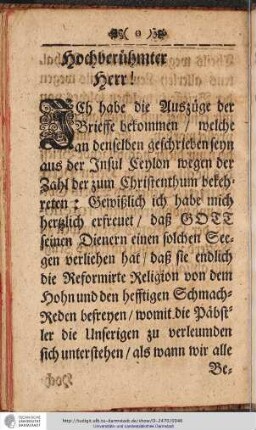 ( o )
Hochberühmter
Herr!
ICh habe die Auszüge der
Brieffe bekommen / welche
an denselben geschrieben seyn
aus der Insul Ceylon wegen der
Zahl der zum Christenthum bekeh-
reten : Gewißlich ich habe mich
hertzlich erfreuet / daß GOTT
seinen Dienern einen solchen See-
gen verliehen hat / daß sie endlich
die Reformirte Religion von dem
Hohn und den hefftigen Schmach-
Reden befreyen / womit die Päbst-
ler die Unserigen zu verleumden
sich unterstehen / als wann wir alle
Be-
Universitäts- und Landesbibliothek Darmstadt